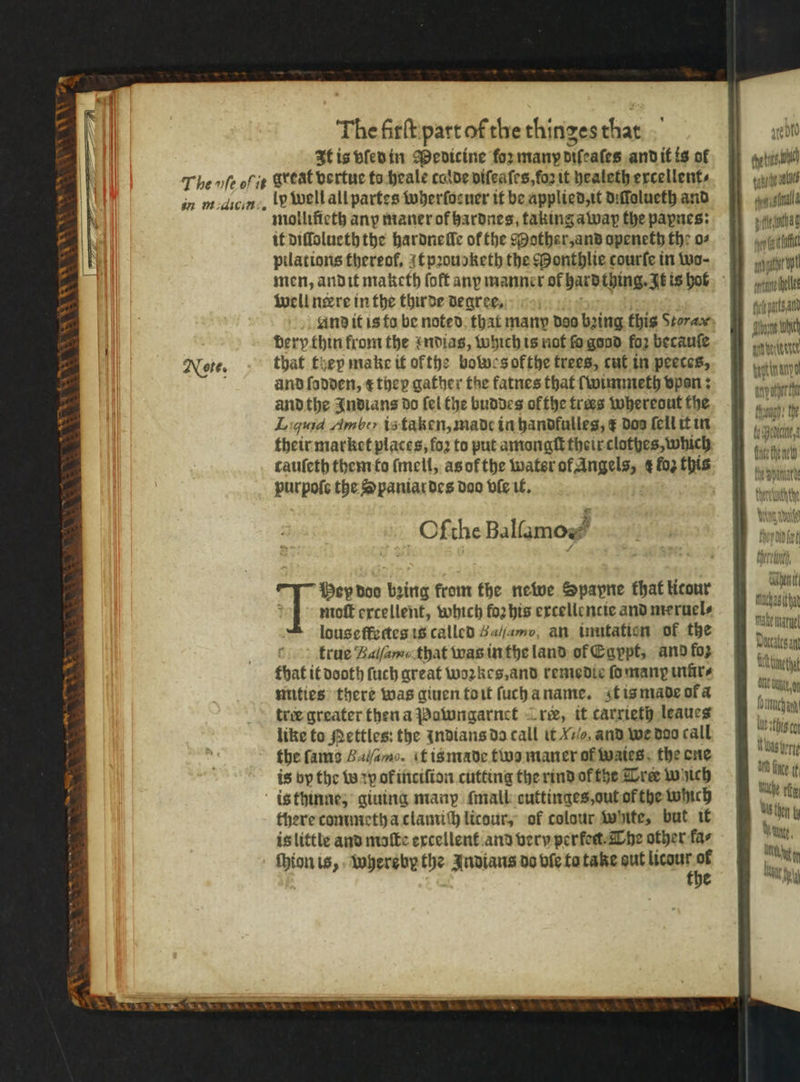 The firſt part of the thinges that
It is vſed in Medicine for many diſeaſes and it is of
The vſe of it
in medicin.
great vertue to heale colde diſeaſes, for it healeth excellent-
ly well all partes wherſoeuer it be applied, it diſſolueth and
mollifieth any maner of hardnes, taking away the paynes:
it diſſolueth the hardneſſe of the Mother, and openeth the o-
pilations thereof. It prouoketh the Monthlie courſe in wo-
men, and it maketh ſoft any manner of hard thing. It is hot
well néere in the thirde degree.
And it is to be noted that many doo bring this Storax
very thin from the Indias, which is not ſo good for becauſe
Note.
that they make it of the bowes of the trees, cut in peeces,
and ſodden, & they gather the fatnes that ſwimmeth vpon:
and the Indians do ſel the buddes of the trées whereout the
Liquid Amber is taken, made in handfulles, & doo ſell it in
their market places, for to put amongſt their clothes, which
cauſeth them to ſmell, as of the water of Angels, & for this
purpoſe the Spaniardes doo vſe it.
Of the Balſamo.
They doo bring from the newe Spayne that licour
moſt excellent, which for his excellencie and meruel-
lous effectes is called Balſamo, an imitation of the
true Balſamo that was in the land of Egypt, and for
that it dooth ſuch great workes, and remedie ſo many infir-
mities there was giuen to it ſuch a name. It is made of a
trée greater then a Powngarnet Trée, it carrieth leaues
like to Nettles: the Indians do call it Xilo, and we doo call
the ſame Balſamo. It is made two maner of waies. the one
is by the way of inciſion cutting the rind of the Trée which
is thinne, giuing many ſmall cuttinges, out of the which
there commeth a clamiſh licour, of colour white, but it
is little and moſte excellent and very perfect. The other fa-
ſhion is, whereby the Indians do vſe to take out licour of
the